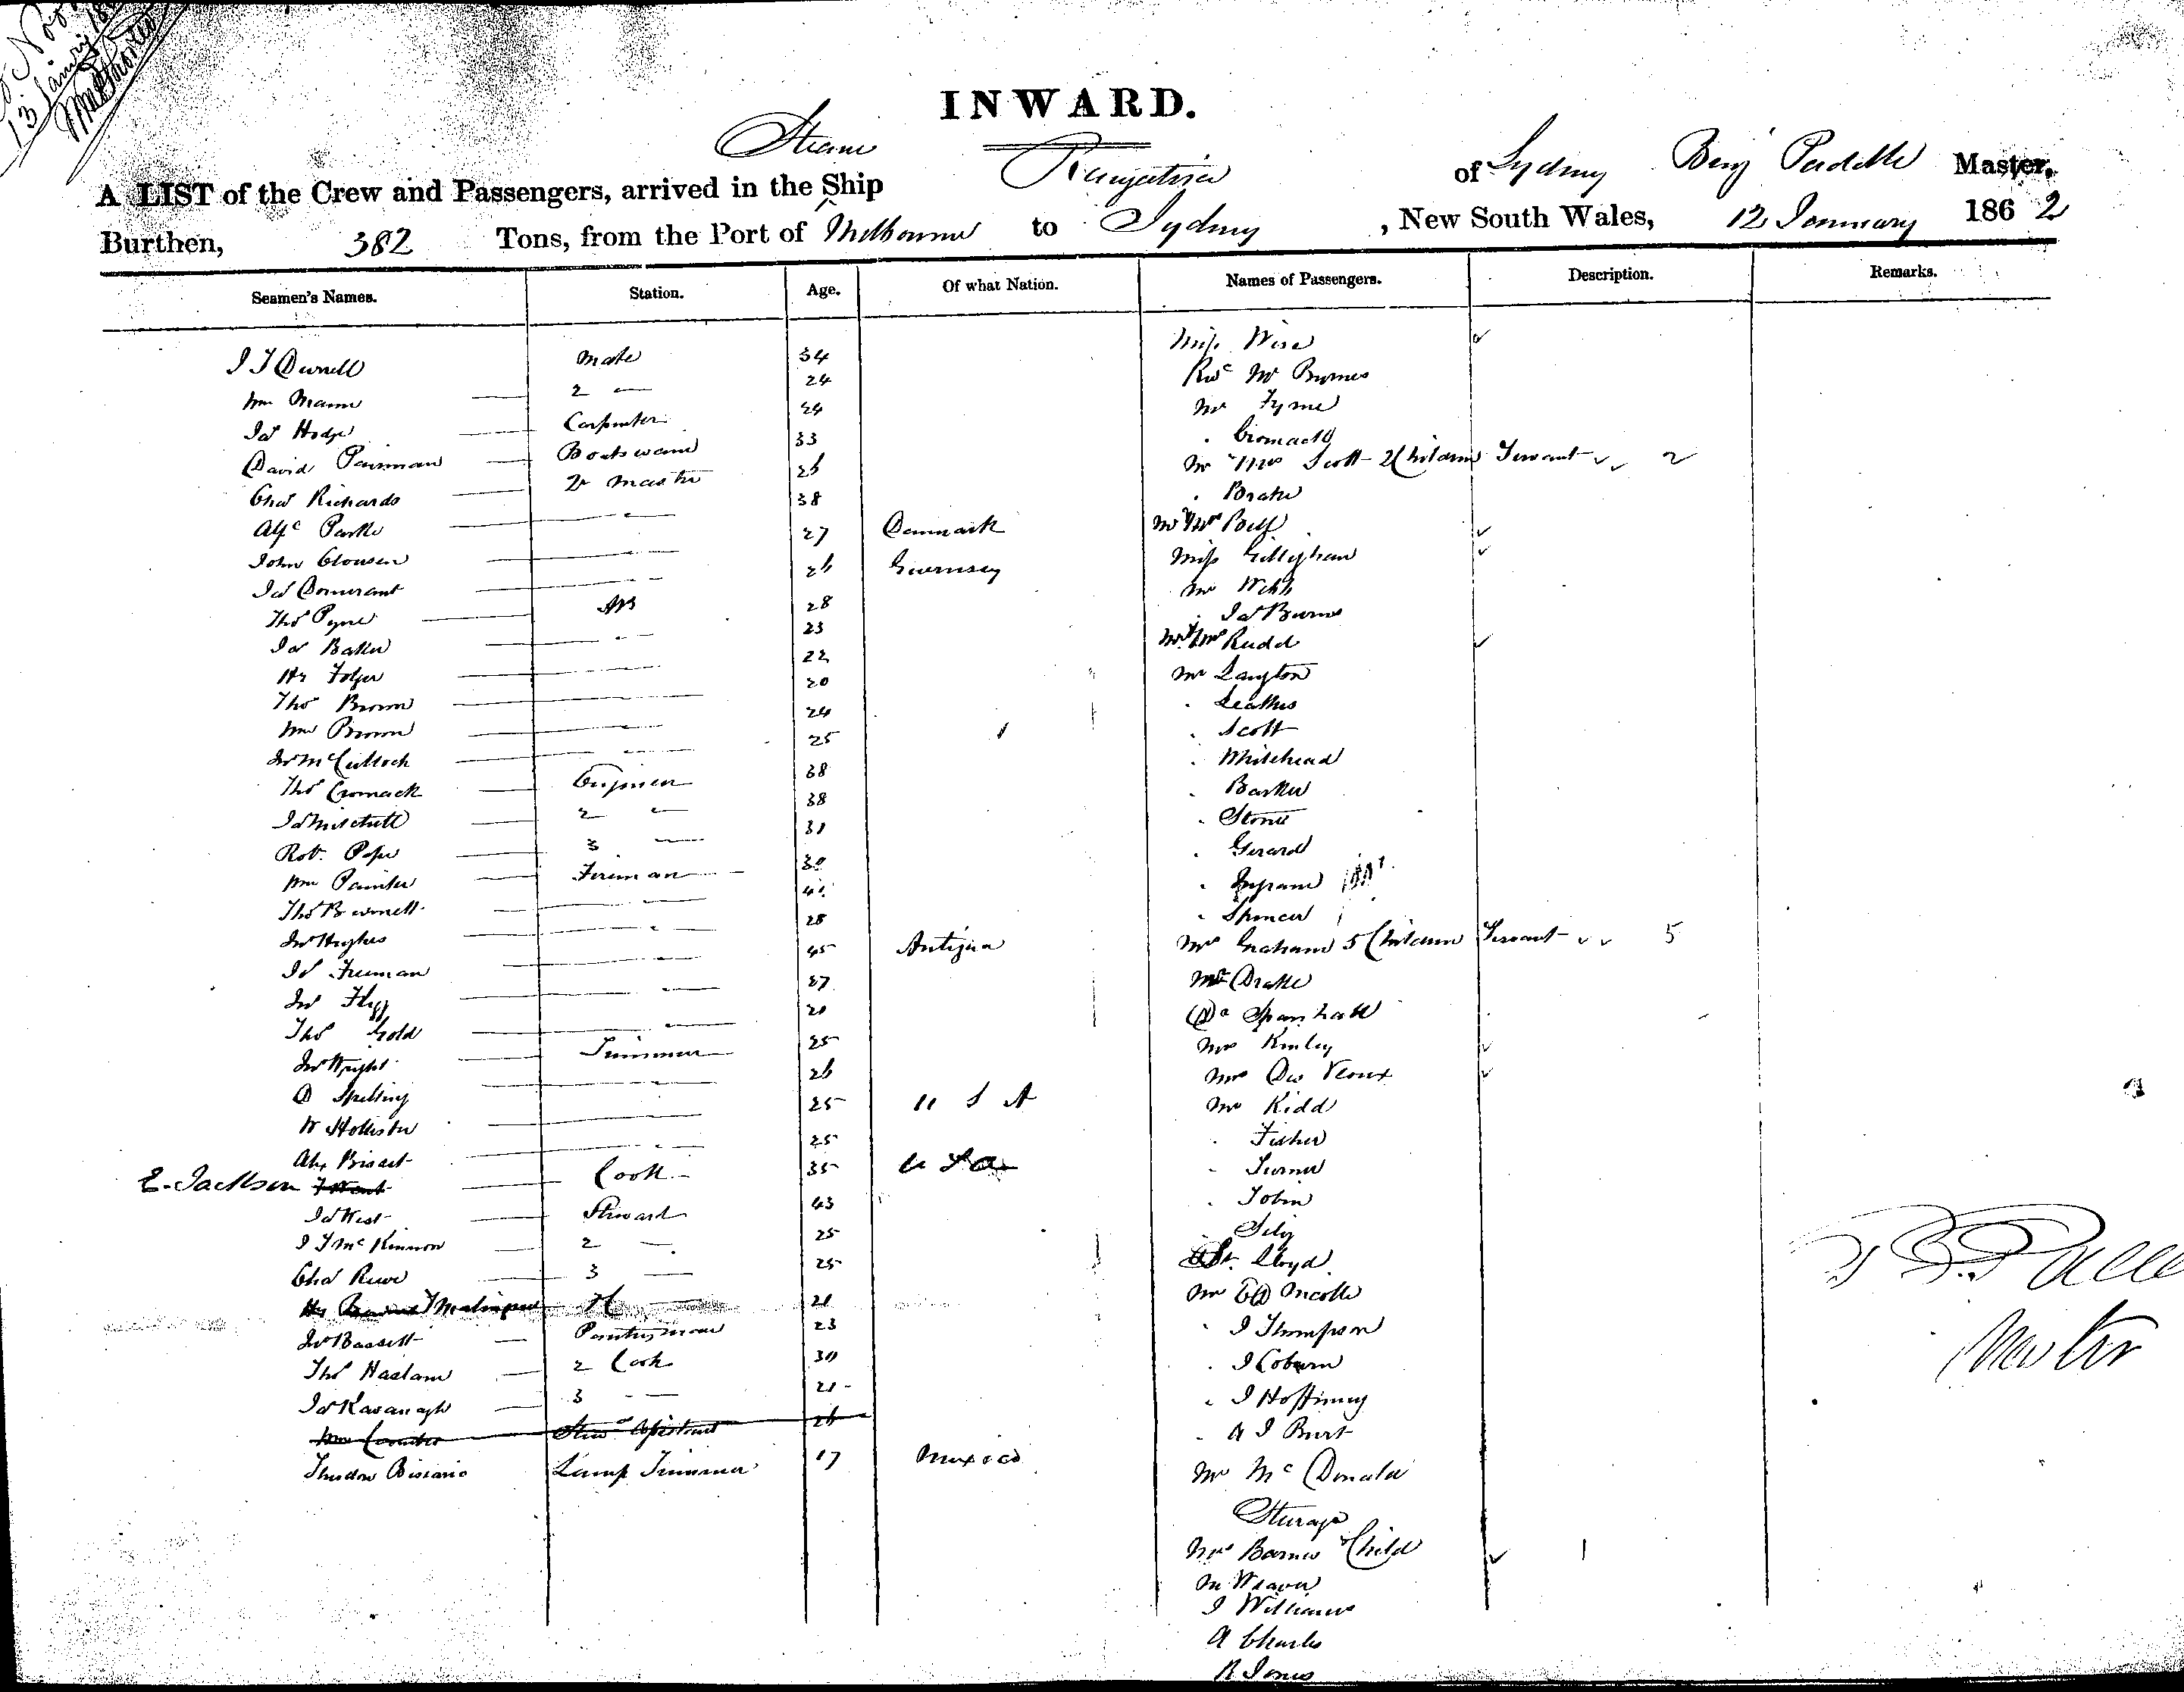 13 January
INWARD.
Steam
A LIST of the Crew and Passengers, arrived in the Ship Rangatira of Sydney Benj Paddle Master,
Burthen, 382 Tons, from the Port of Melbourne to Sydney, New South Wales, 12 January 1862
Seamen's Names. Station. Age. Of what Nation. Names of Passengers. Description. Remarks.
J J Durrell Mate 34
Wm Mann 2 — 24
Jas Hodge Carpenter 24
David Pairman Boatswain 33
Chas Richards 2r Master 26
Alfc Parke — 38
John Clousen — 27 Denmark
Jas Domerant — 26 Guernsey
Thos Pyne AB 28
Jas Baker — 23
Hy Folger — 22
Thos Brown — 20
Wm Brown — 24
Jno McCulloch — 25
Thos Cromack Engineer 38
Jas Mitchell 2 — 38
Robt. Pope 3 — 31
Wm Painter Fireman 30
Thos Burnell — 41
Jno Hughes — 28
Js Freeman — 45 Antigua
Jno Flygg — 27
Thos Gold — 21
Jno Wright Trimmer 25
D Spelling — 26
W Hollister — 25 U S A
Alex Bisset — 25
E. Jackson Cook 35 U S A
Jas West Steward 43
J J McKinnon 2 — 25
Chas Rewe 3 — 25
21
Jno Bassett Pantryman 23
Thos Haslam 2 Cook 30
Jas Kavanagh 3 — 21
Wm Stewd Assistant 26
Theodore Bisianio Lamp Trimmer 17 Mexico
Miss Wise
Revd Mr Byrnes
Mr Fyme
. Cromack
Mr & Mrs Scott 2 Children Servant 2
. Brake
Mr & Mrs Poelf
Miss Gillighan
Mr Webb
. Jas Burns
Mr & Mrs Rudd
Mr Langton
. Leathes
. Scott
. Whitehead
. Barker
. Stone
. Gerard
. Ingram
. Spencer
Mrs Graham 5 Children Servant 5
Mr Drake
Dr Spanhake
Mrs Kinley
Mrs Des Veoux
Mr Kidd
. Fisher
. Turner
. Tobin
. Lloyd
Mr E D Nicolle
. J Thompson
. J Coburn
. J Hoffnung
. A J Burt
Mr McDonald
Steerage
Mrs Barnes Child 1
M Weaver
J Williams
A Charles
R Jones
Master